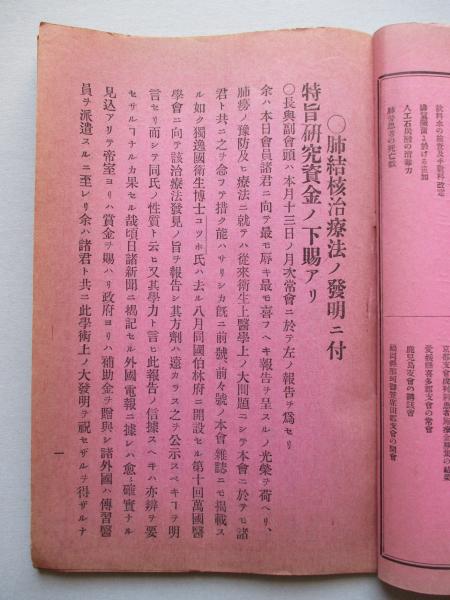 〇肺結核治療法ノ發明ニ付
特旨研究資金ノ下賜アリ
〇長與副會頭ハ本月十三日ノ月次常會ニ於テ左ノ報告ヲ爲セリ
余ハ本日會員諸君ニ向テ最モ辱キ最モ喜フヘキ報告ヲ呈スルノ光榮ヲ荷ヘリ、
肺癆ノ豫防及ヒ療法ニ就テハ從來衛生上醫學上ノ大問題ニシテ本會ニ於テモ諸
君ト共ニ之ヲ念フテ措ク能ハサリシカ既ニ前號、前々號ノ本會雜誌ニモ掲載ス
ル如ク獨逸國衛生博士コツホ氏ハ去ル八月同國伯林府ニ開設セル第十回萬國醫
學會ニ向テ該治療法發見ノ旨ヲ報告シ其方劑ハ遠カラス之ヲ公示スベキヿヲ明
言セリ而シテ同氏ノ性質ト云ヒ又其學力ト言ヒ此報告ノ信據スヘキハ亦辨ヲ要
セサルナルカ果セル哉頃日諸新聞ニ掲記セル外國電報ニ據レハ愈〻確實ナル
見込アリテ帝室ヨリハ賞金ヲ賜ハリ政府ヨリハ補助金ヲ贈與シ諸外國ハ傳習醫
員ヲ派遣スルニ至レリ余ハ諸君ト共ニ此學術上ノ大發明ヲ祝セザルヲ得ザルナ
一
飲料水の檢査及手數料改定
人工石炭酸の消毒力
肺勞患者の死亡數
愛媛縣喜多郡支會の常會
鹿兒島支會の講話會